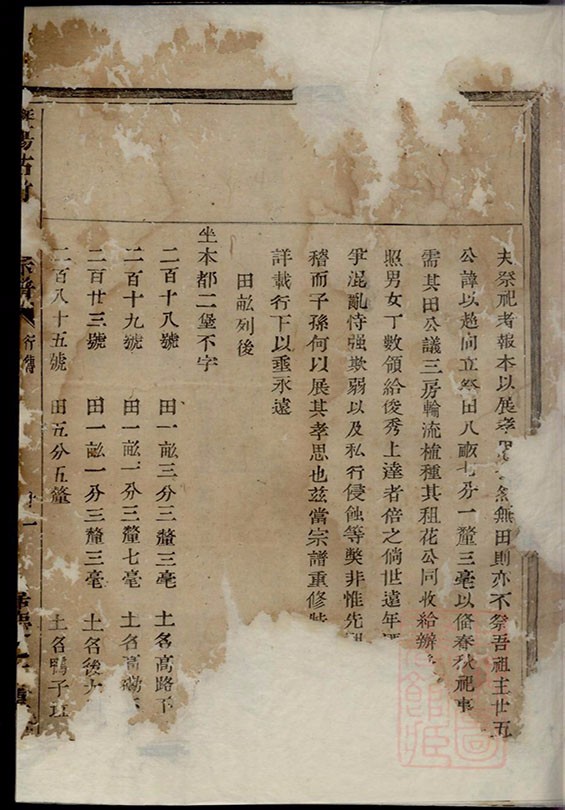 夫祭祀者報本以展孝無田則亦不祭吾祖主廿五
公諱以趙向立祭田八畝七分一釐三毫以俻春秋祀事
需其田公議三房輪流植種其租花公同收給辦
照男女丁數領給俊秀上達者倍之倘世遠年
爭混亂恃强欺弱以及私行侵蝕等獘非惟先
稽而子孫何以展其孝思也兹當宗譜重修
詳載行下以垂永遠
田畝列後
坐木都二堡不字
二百十八號 田一畝三分三釐三毫 土名高路下
二百十九號 田一畝一分三釐七毫 土名高
二百廿三號 田一畝一分三釐三毫 土名後
二百八十五號 田五分五釐 土名鴨子
暨陽 宗譜 行傳 十一